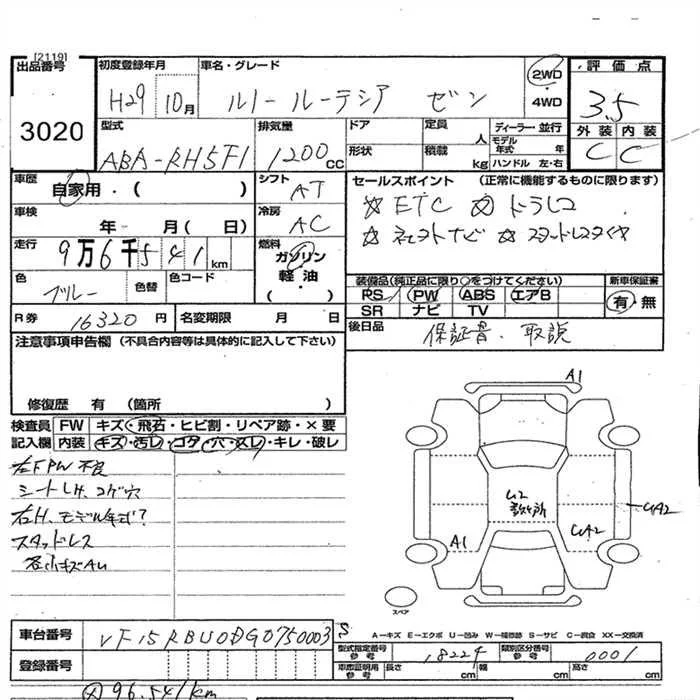 [2119]
出品番号 初度登録年月 車名・グレード 2WD 評価点
H29 10月 ルノー ルーテシア ゼン 4WD 3.5
3020 型式 排気量 ドア 定員 人 ディーラー・並行 外装 内装
ABA-RH5F1 1200cc 形状 積載 kg モデル年式 年 ハンドル 左・右 C C
車歴 自家用・( ) シフト AT セールスポイント (正常に機能するものに限ります)
車検 年 月( 日) 冷房 AC ☆ETC ☆ドラレコ
走行 9万6千541km 燃料 ガソリン・軽油( ) ☆ ナビ ☆スタッドレスタイヤ
色 ブルー 色替 色コード 装備品(純正品に限り○をつけてください) 新車保証書
PS PW ABS エアB 有・無
SR ナビ TV
R券 16320円 名変期限 月 日 後日品 保証書、取説
注意事項申告欄 (不具合内容等は具体的に記入して下さい)
修復歴 有 (箇所 )
検査員記入欄 FW キズ・飛石・ヒビ割・リペア跡・×要
内装 キズ・汚レ・コゲ・穴・スレ・キレ・破レ
左FPW不良
シートLH、コゲ穴
右H、モデル年式?
スタッドレス
各小キズAU
A1
U2
A1
UA2
UA2
スペア
車台番号 VF15RBU0DG0750003 S
A-キズ E-エクボ U-凹み W-補修跡 S-サビ C-腐食 XX-交換済
登録番号 型式指定番号 参考 18224 類別区分番号 参考 0001
車庫証明用 参考 長さ cm 幅 cm 高さ cm
96.541km